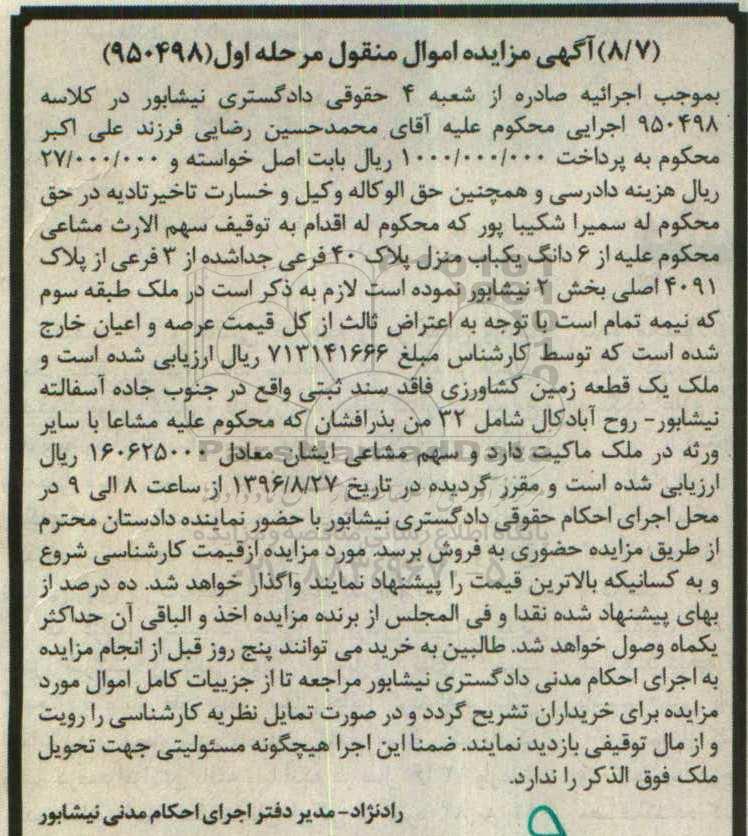 (۸/۷) آگهی مزایده اموال منقول مرحله اول (۹۵۰۴۹۸)
بموجب اجرائیه صادره از شعبه ۴ حقوقی دادگستری نیشابور در کلاسه
۹۵۰۴۹۸ اجرایی محکوم علیه آقای محمدحسین رضایی فرزند علی اکبر
محکوم به پرداخت ۱۰۰۰/۰۰۰/۰۰۰ ریال بابت اصل خواسته و ۲۷/۰۰۰/۰۰۰
ریال هزینه دادرسی و همچنین حق الوکاله وکیل و خسارت تاخیرتادیه در حق
محکوم له سمیرا شکیبا پور که محکوم له اقدام به توقیف سهم الارث مشاعی
محکوم علیه از ۶ دانگ یکباب منزل پلاک ۴۰ فرعی جداشده از ۳ فرعی از پلاک
۴۰۹۱ اصلی بخش ۲ نیشابور نموده است لازم به ذکر است در ملک طبقه سوم
که نیمه تمام است با توجه به اعتراض ثالث از کل قیمت عرصه و اعیان خارج
شده است که توسط کارشناس مبلغ ۷۱۳۱۴۱۶۶۶ ریال ارزیابی شده است و
ملک یک قطعه زمین کشاورزی فاقد سند ثبتی واقع در جنوب جاده آسفالته
نیشابور- روح آبادکال شامل ۳۲ من بذرافشان که محکوم علیه مشاعا با سایر
ورثه در ملک ماکیت دارد و سهم مشاعی ایشان معادل ۱۶۰۶۲۵۰۰۰ ریال
ارزیابی شده است و مقرر گردیده در تاریخ ۱۳۹۶/۸/۲۷ از ساعت ۸ الی ۹ در
محل اجرای احکام حقوقی دادگستری نیشابور با حضور نماینده دادستان محترم
از طریق مزایده حضوری به فروش برسد. مورد مزایده ازقیمت کارشناسی شروع
و به کسانیکه بالاترین قیمت را پیشنهاد نمایند واگذار خواهد شد. ده درصد از
بهای پیشنهاد شده نقدا و فی المجلس از برنده مزایده اخذ و الباقی آن حداکثر
یکماه وصول خواهد شد. طالبین به خرید می توانند پنج روز قبل از انجام مزایده
به اجرای احکام مدنی دادگستری نیشابور مراجعه تا از جزییات کامل اموال مورد
مزایده برای خریداران تشریح گردد و در صورت تمایل نظریه کارشناسی را رویت
و از مال توقیفی بازدید نمایند. ضمنا این اجرا هیچگونه مسئولیتی جهت تحویل
ملک فوق الذکر را ندارد.
رادنژاد- مدیر دفتر اجرای احکام مدنی نیشابور